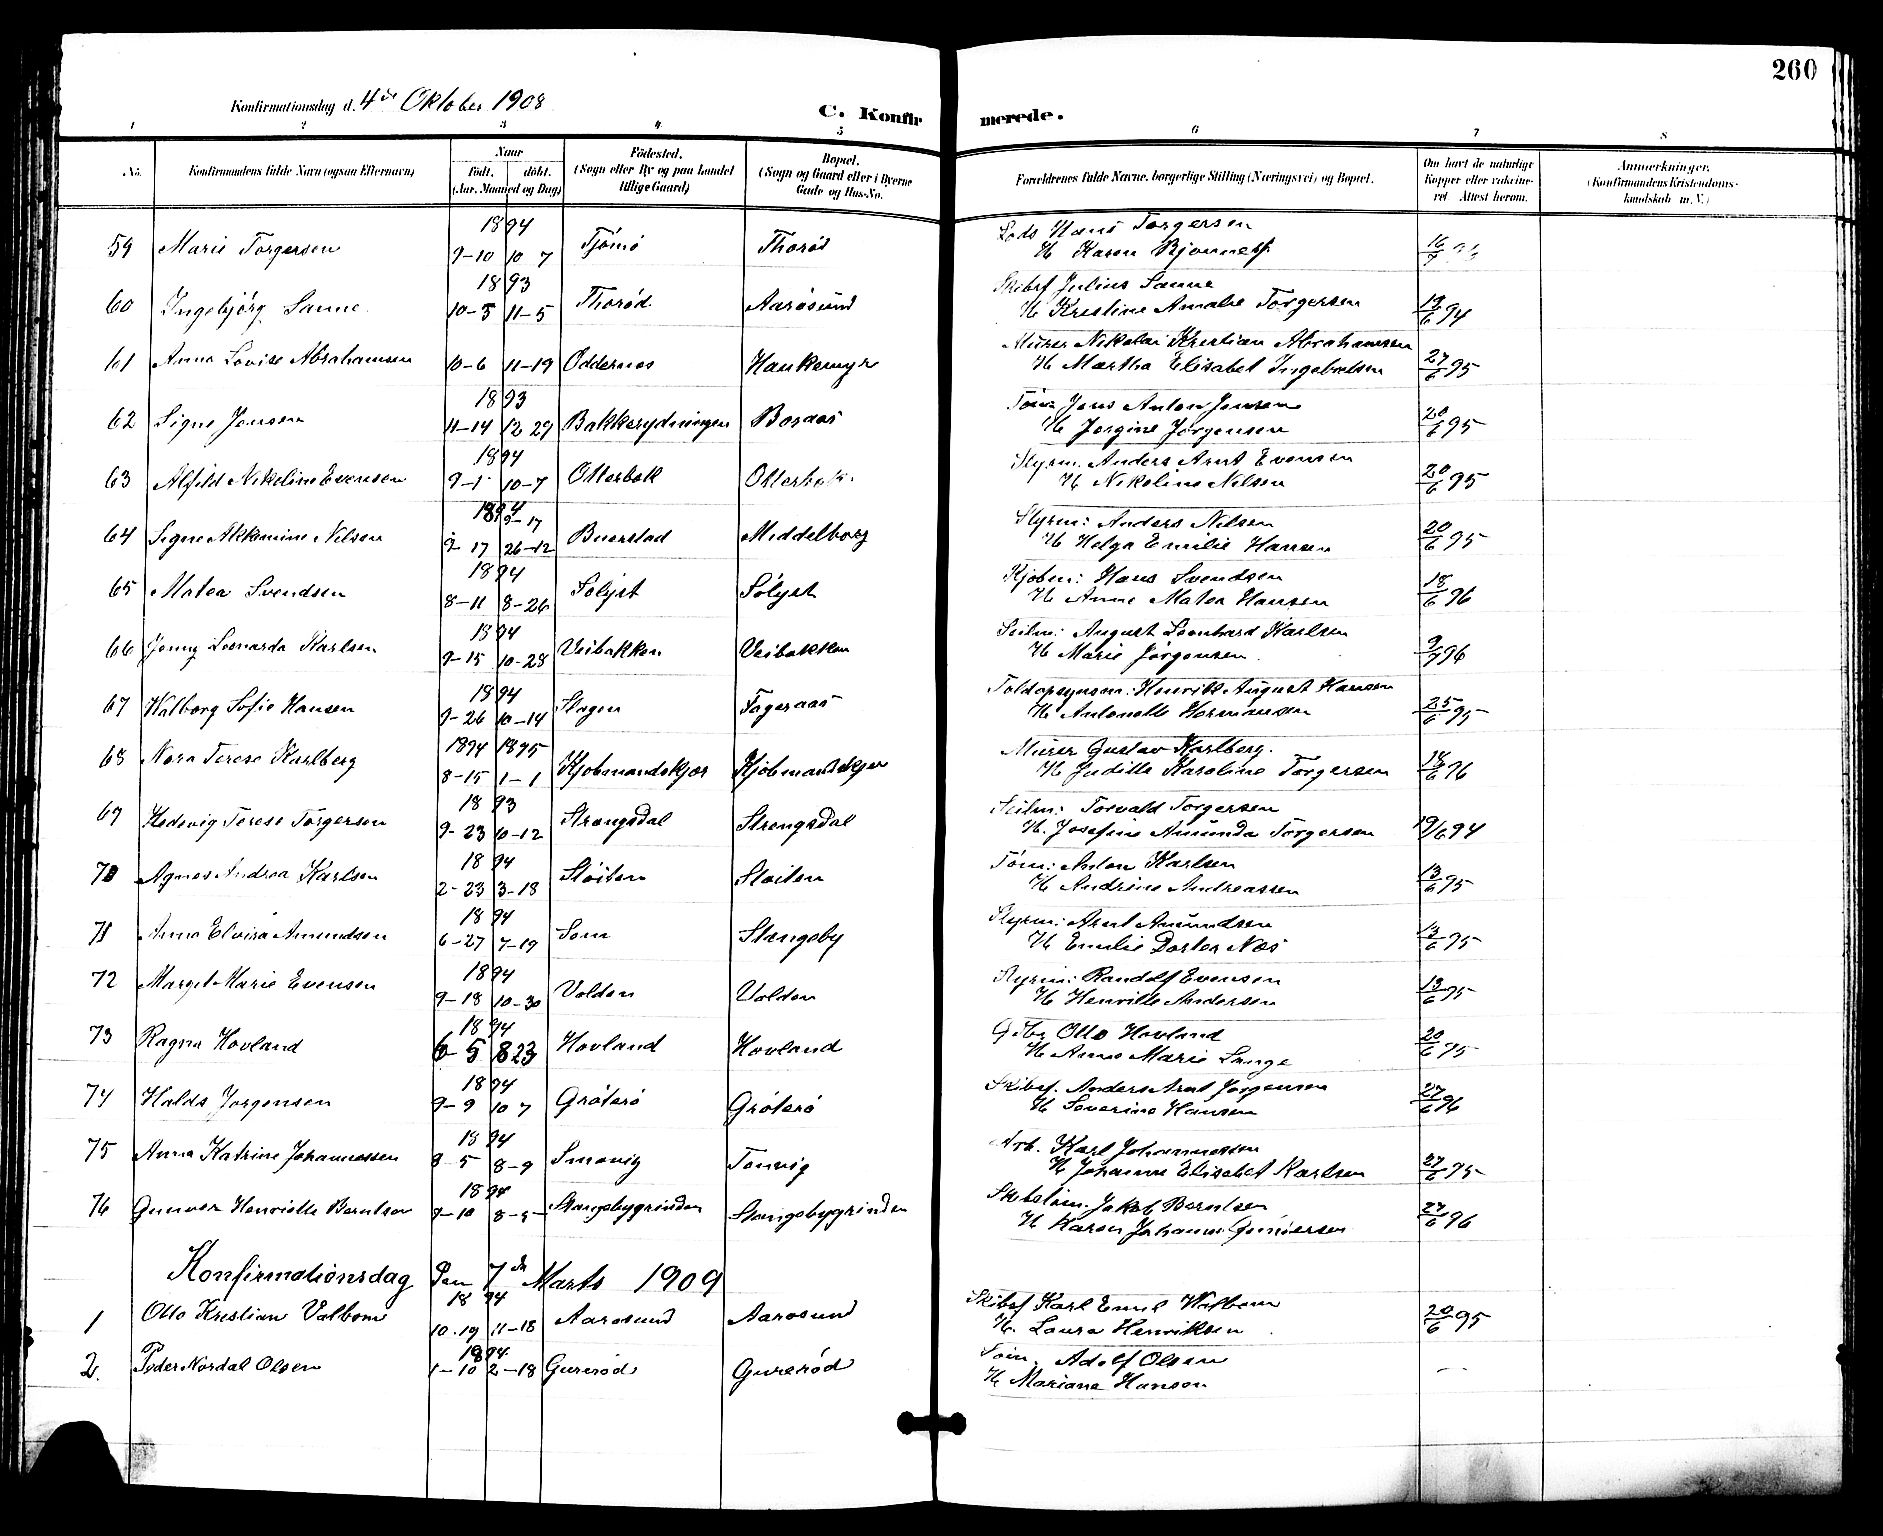 260
Konfirmationsdag d. 4de Oktober 1908
C. Konfirmerede.
1 2 3 4 5 6 7 8
No. Konfirmandens fulde Navn (ogsaa Efternavn) Naar født. døbt. (Aar. Maaned og Dag) Fødested. (Sogn eller By og paa Landet tillige Gaard) Bopæl. (Sogn og Gaard eller i Byerne Gade og Hus-No. Forældrenes fulde Navne, borgerlige Stilling (Næringsvei) og Bopæl. Om havt de naturlige Kopper eller vaccineret. Attest herom. Anmerkninger. (Konfirmandens Kristendomskundskab m. V.)
59 Marie Torgersen 1894 9-10 10 7 Tjømø Thorød Lods Hans Torgersen
H Karen Bjonness 16/7
60 Ingebjørg Sanne 1893 10-5 11-5 Thorød Aarøsund Skibsf Julius Sanne
H Kristine Amalie Torgersen 13/6 94
61 Anna Lovise Abrahamsen 10-6 11-19 Oddernes Haukemyr Murer Nikolai Kristian Abrahamsen
H Martha Elisabet Ingebretsen 27/6 95
62 Signe Jensen 1893 11-14 12 29 Bakkerydningen Boraas Tøm: Jens Anton Jensen
H Jørgine Jørgensen 20/6 95
63 Alfild Nikoline Evensen 1894 9-1 10-7 Otterbæk Otterbæk Styrm. Anders Arnt Evensen
H Nikoline Nilsen 20/6 95
64 Signe Akkemine Nilsen 1894 9-17 9-17 26-12 Buerstad Middelborg Styrm: Anders Nilsen
H Helga Emilie Hansen 20/6 95
65 Matea Svendsen 1894 8-11 8-26 Solyst Sølyst Kjøbm: Hans Svendsen
H Anne Matea Hansen 18/6 96
66 Jenny Leonarda Karlsen 1894 9-15 10-28 Veibakken Veibakken Seilm: August Leonhard Karlsen
H Marie Jørgensen 9/7 96
67 Walborg Sofie Hansen 1894 9-26 10-14 Slagen Fageraas Toldopsynsm: Henrik August Hansen
H Antonette Hermansen 25/6 95
68 Nora Terese Karlberg 1894 1895 8-15 1-1 Kjøbmandskjær Kjøbmandskjær Murer Gustav Karlberg.
H Judith Karoline Torgersen 18/6 96
69 Hedevig Terese Torgersen 1893 9-23 10-12 Strengsdal Strengsdal Seilm: Torvald Torgersen
H. Josefine Amunda Torgersen 19/6 94
70 Agnes Andrea Karlsen 1894 2-23 3-18 Støiten Støiten Tøm: Anton Karlsen
H Andrine Andreassen 13/6 95
71 Anna Elvira Amundsen 1894 6-27 7-19 Sem Stangeby Styrm: Arnt Amundsen
H Emilie Dortea Næs 13/6 95
72 Margit Marie Evensen 1894 9-18 10-30 Volden Volden Styrm: Randolf Evensen
H Henriette Andersen 13/6 95
73 Ragna Hovland 1894 6-5 8 23 Hovland Hovland Gbr. Otto Hovland
H Anne Marie Lange 20/6 95
74 Haldis Jorgensen 1894 9-9 10 7 Grøterø Grøterø Skibsf. Anders Arnt Jørgensen
H Severine Hansen 27/6 96
75 Anna Katrine Johannessen 1894 8-5 8-9 Smovig Tenvig Arb. Karl Johannessen
H Johanne Elisabet Karlsen 27/6 95
76 Gunvor Henriette Berntsen 1894 7-10 8-5 Stangebygrinden Stangebygrinden Skibstøm. Jakob Berntsen
H Karen Johanne Gundersen 27/6 96
Konfirmationsdag Den 7de Marts 1909
1 Otto Kristian Valbom 1894 10.19 11-18 Aarosund Aarosund Skibsf Karl Emil Walbom
H. Laura Henriksen 20/6 95
2. Peder Nordal Olsen 1894 1-10 2-18 Gurerød Gurerød Tøm. Adolf Olsen
H Mariane Hansen